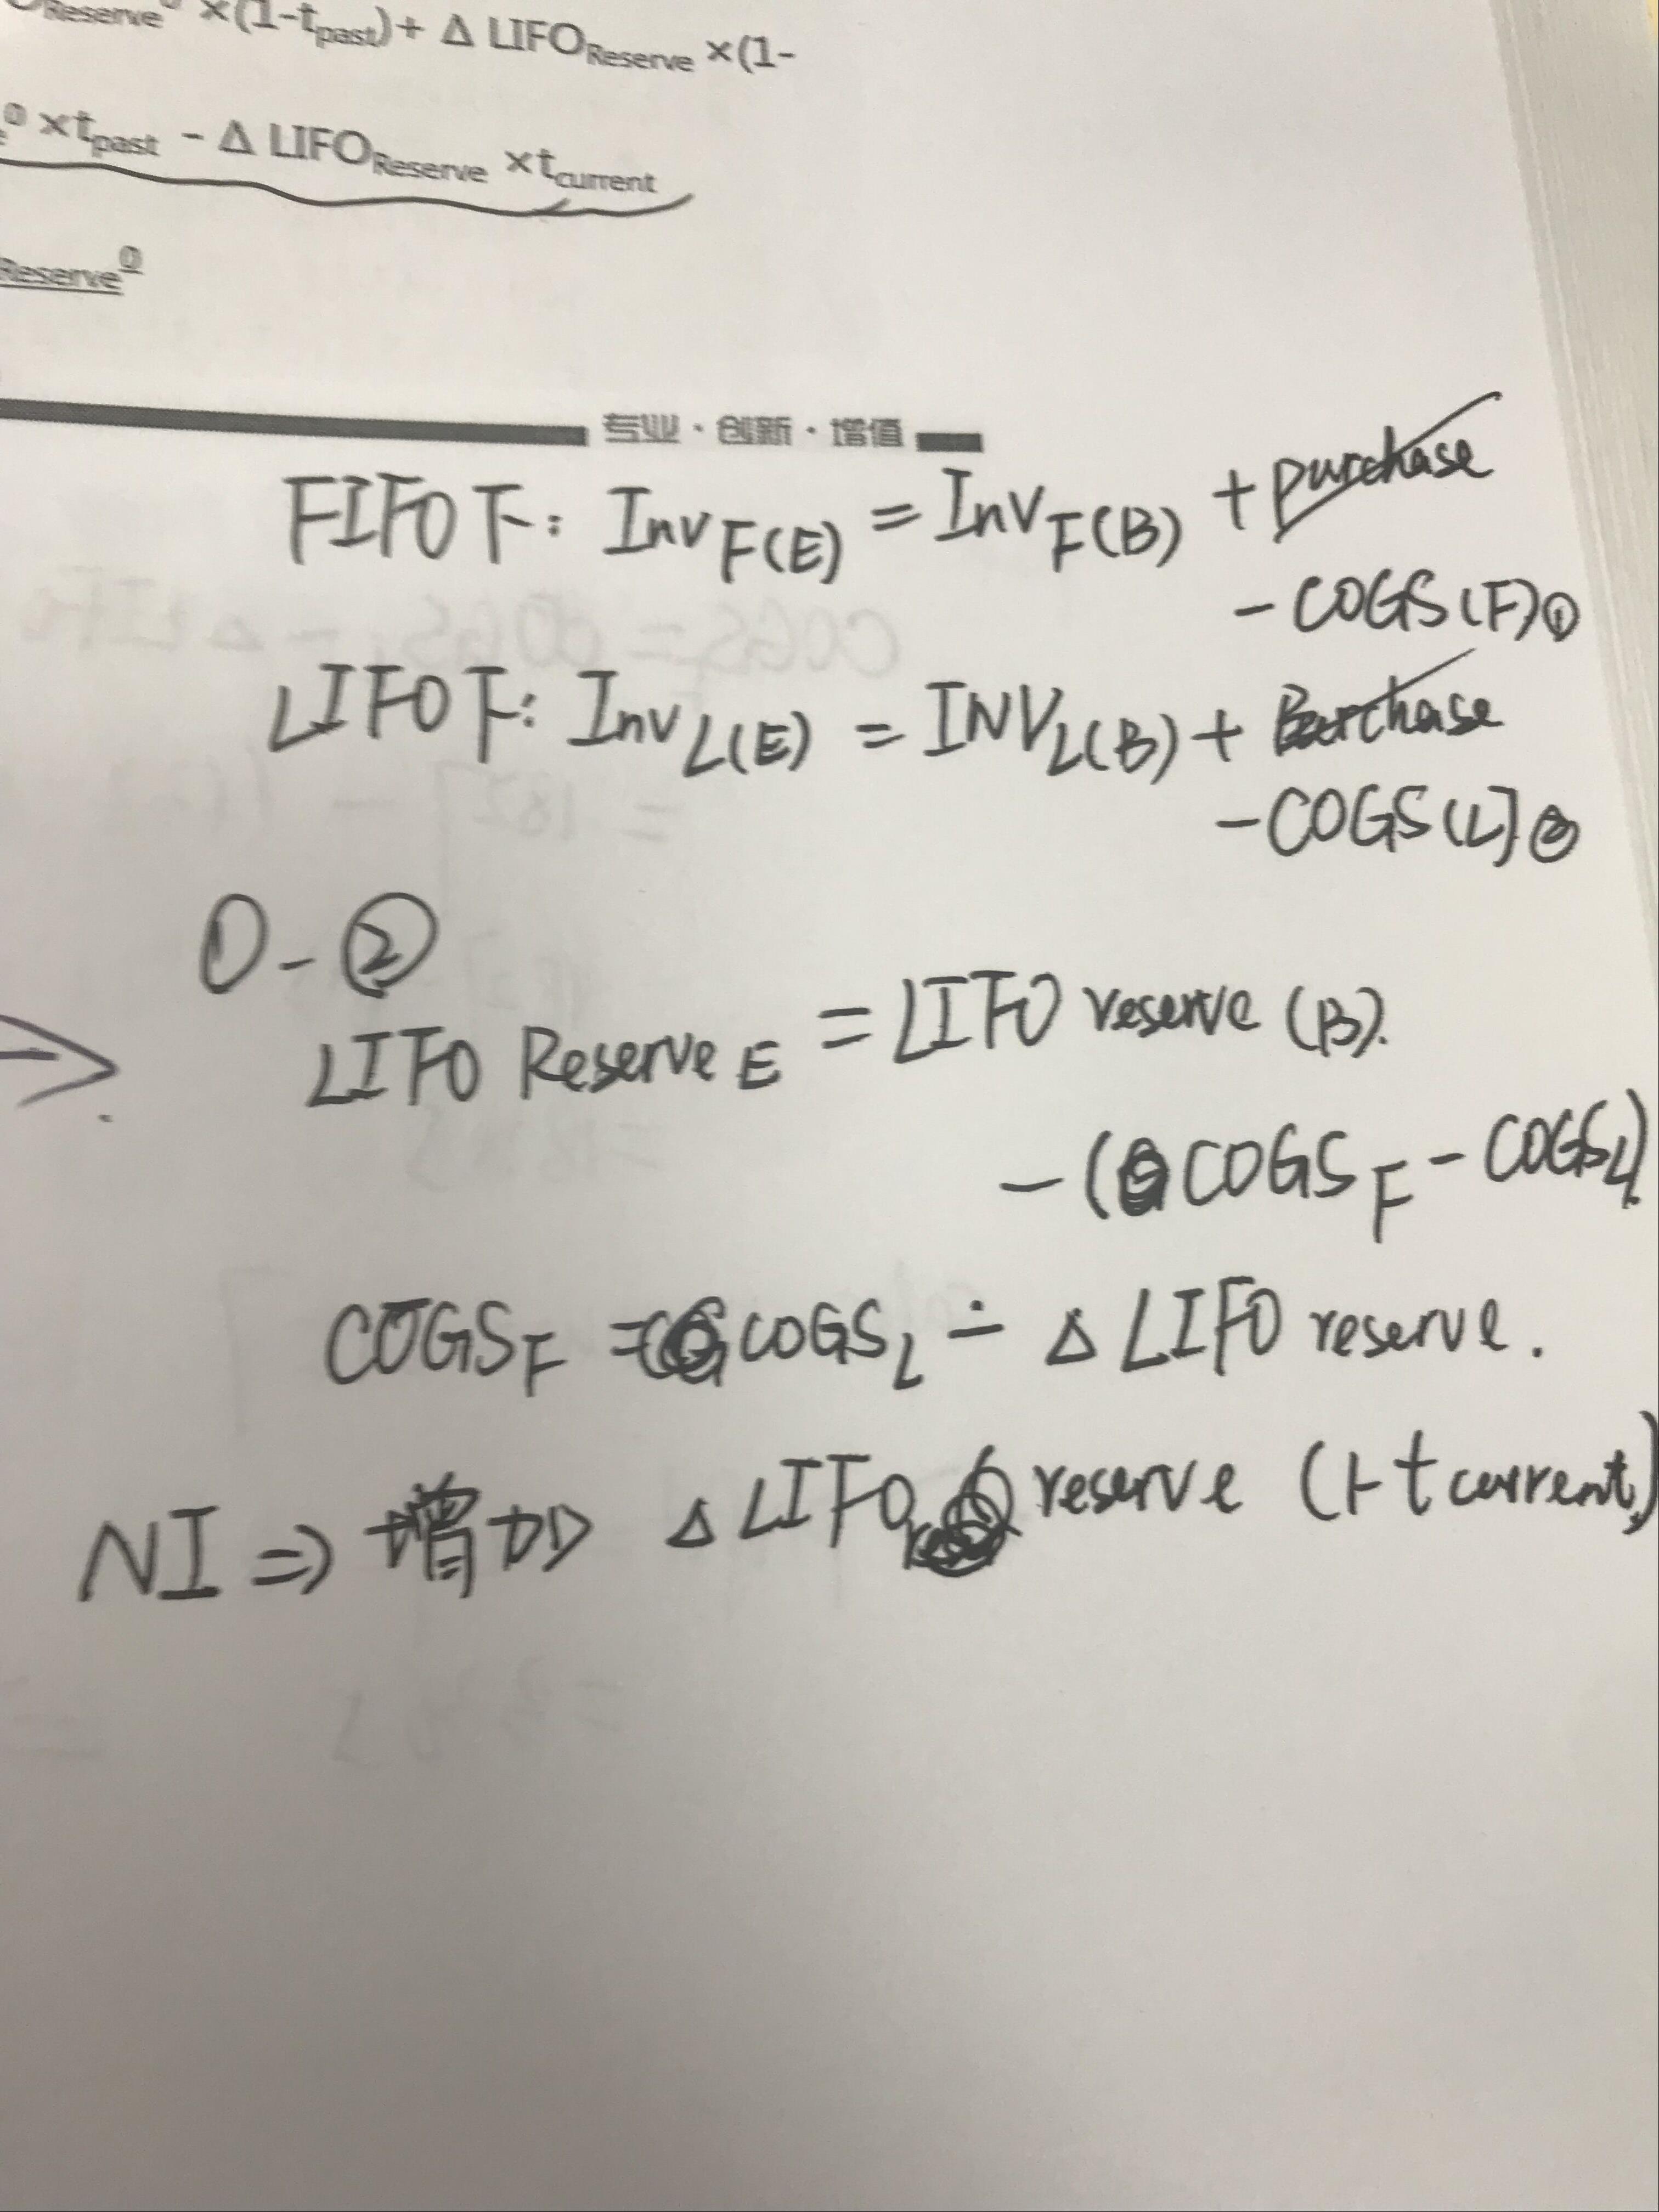 Reserve⁰ ×(1-t_past)+ Δ LIFO_Reserve ×(1-
⁰ ×t_past - Δ LIFO_Reserve ×t_current
Reserve⁰
专业·创新·增值
FIFO下: Inv F(E) = Inv F(B) + purchase
- COGS(F)①
LIFO下: Inv L(E) = INV L(B) + Purchase
- COGS(L)②
① - ②
LIFO Reserve E = LIFO reserve (B).
- (COGS F - COGS L)
COGS F = COGS L - Δ LIFO reserve.
NI ⇒ 增加 Δ LIFO reserve (1-t current)